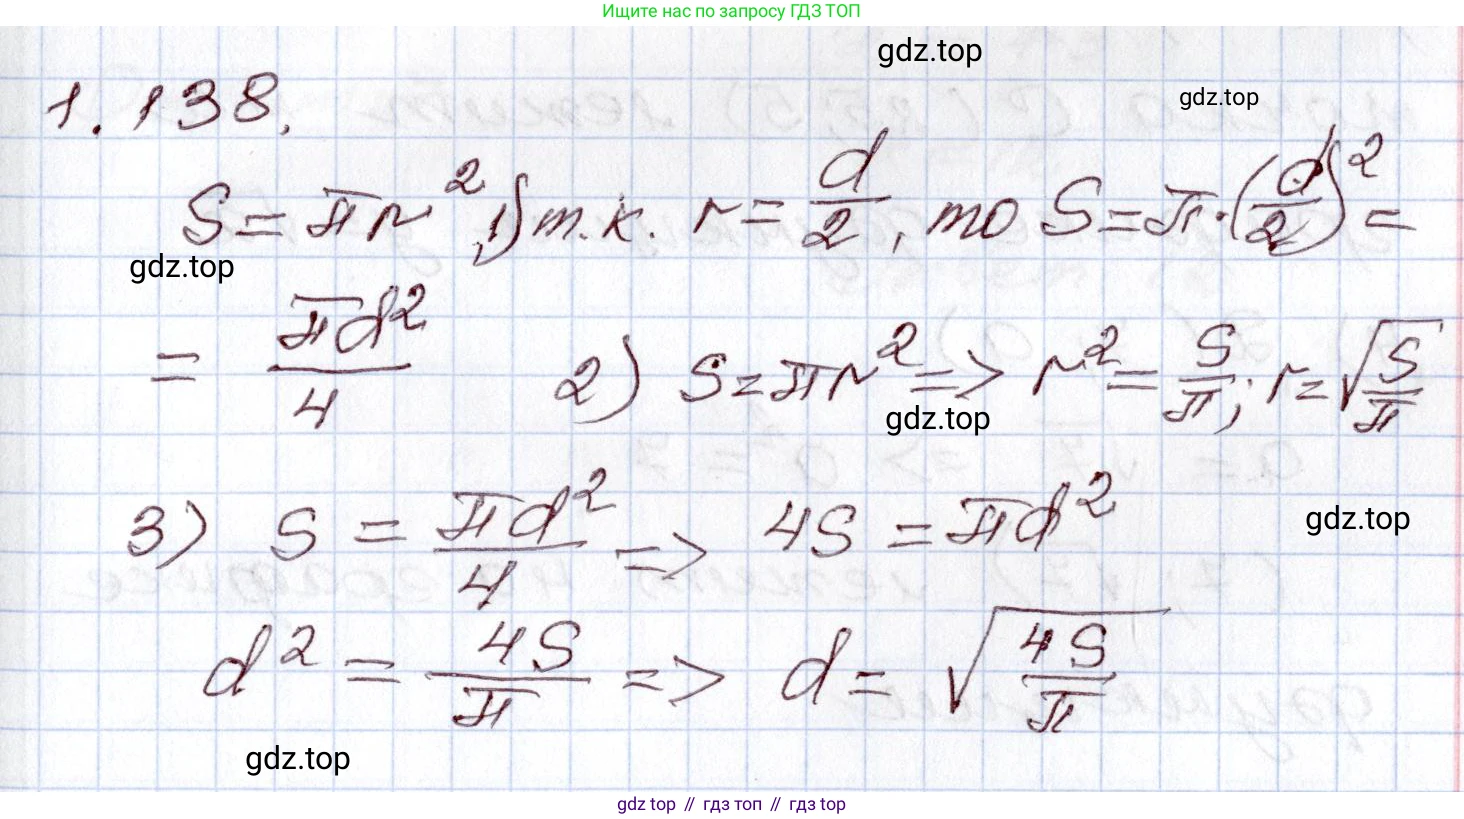 Ищите нас по запросу ГДЗ ТОП
gdz.top
1.138.
gdz.top
S = πr², 1) т.к. r = d/2, то S = π·(d/2)² =
gdz.top
= πd²/4 2) S = πr² => r² = S/π; r = √(S/π)
gdz.top
3) S = πd²/4 => 4S = πd²
gdz.top
d² = 4S/π => d = √(4S/π)
gdz.top
gdz top // гдз топ // gdz top